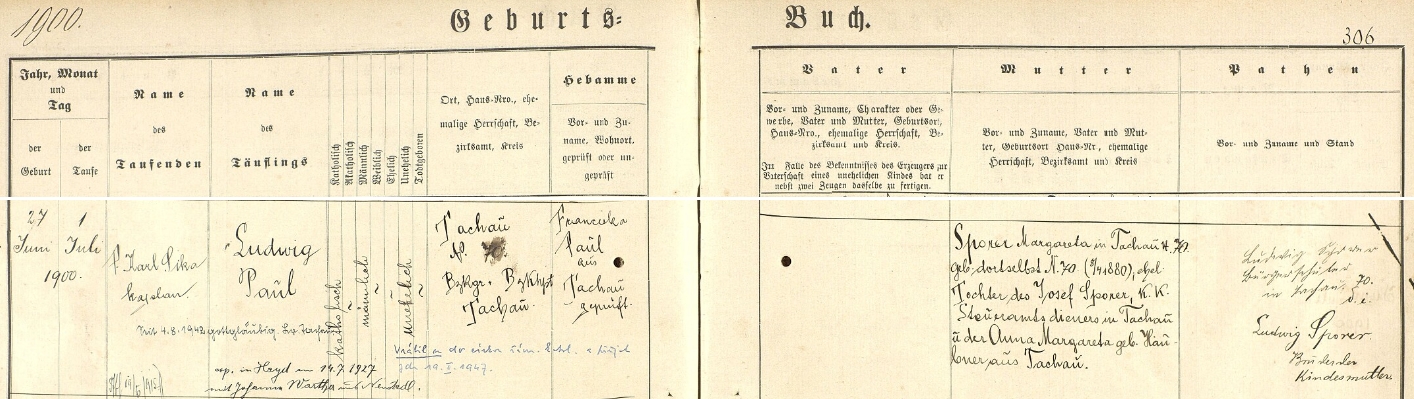 1900.
Geburts=
Buch.
306
Jahr, Monat
und
Tag
der
Geburt
der
Taufe
Name
des
Taufenden
Name
des
Täuflings
Katholisch
Akatholisch
Männlich
Weiblich
Ehelich
Unehelich
Todtgeboren
Ort, Haus-Nro., ehe-
malige Herrschaft, Be-
zirksamt, Kreis
Hebamme
Vor- und Zu-
name, Wohnort,
geprüft oder un-
geprüft
Vater
Vor- und Zuname, Charakter oder Ge-
werbe, Vater und Mutter, Geburtsort,
Haus-Nro., ehemalige Herrschaft, Be-
zirksamt und Kreis.
Im Falle des Bekenntnisses des Erzeugers zur
Vaterschaft eines unehelichen Kindes hat er
nebst zwei Zeugen dasselbe zu fertigen.
Mutter
Vor- und Zuname, Vater und Mut-
ter, Geburtsort Haus-Nr, ehemalige
Herrschaft, Bezirksamt und Kreis
Pathen
Vor- und Zuname und Stand
27
Juni
1
Juli
1900.
P. Karl Sika
Kaplan.
Ludwig
Paul
katholisch
männlich
unehelich
Tachau
N. 70.
Bzkgr. Bzkhpt
Tachau.
Franciska
Paul
aus
Tachau
geprüft.
Seit 4.8.1942 gottgläubig.
Vrátil se do církve řím. kat.
dne 19.I.1947.
cop. in Hayd am 14.7.1927
mit Johanna
Sporer Margareta in Tachau N. 70
geb. dortselbst N. 70 ehel.
Tochter des Josef Sporer, K. K.
Steueramtsdieners in Tachau
u. der Anna Margareta geb. Hau-
bner aus Tachau.
Ludwig Sporer
Bürgerschüler
in Tachau 70.
d. i.
Ludwig Sporer
Bruder der
Kindesmutter.